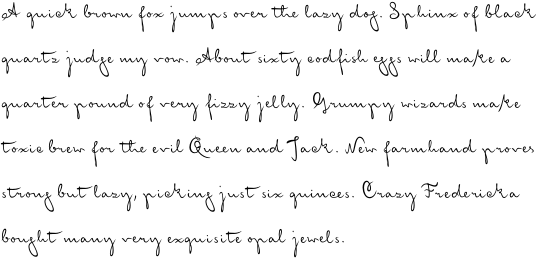 A quick brown fox jumps over the lazy dog. Sphinx of black
quartz judge my vow. About sixty codfish eggs will make a
quarter pound of very fizzy jelly. Grumpy wizards make
toxic brew for the evil Queen and Jack. New farmhand proves
strong but lazy, picking just six quinces. Crazy Fredericka
bought many very exquisite opal jewels.